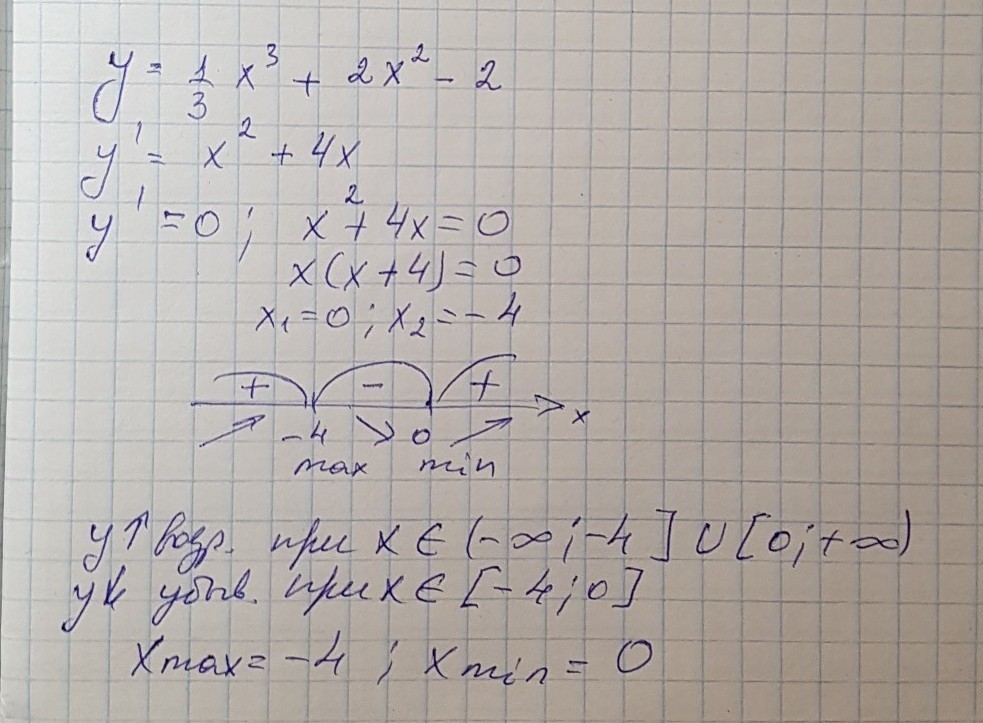 y = 1/3 x³ + 2x² - 2
y' = x² + 4x
y' = 0 ; x² + 4x = 0
x(x+4) = 0
x₁ = 0 ; x₂ = -4
+ - +
-4 0 x
max min
y↑ возр. при x ∈ (-∞; -4] ∪ [0; +∞)
y↓ убыв. при x ∈ [-4; 0]
xmax = -4 ; xmin = 0